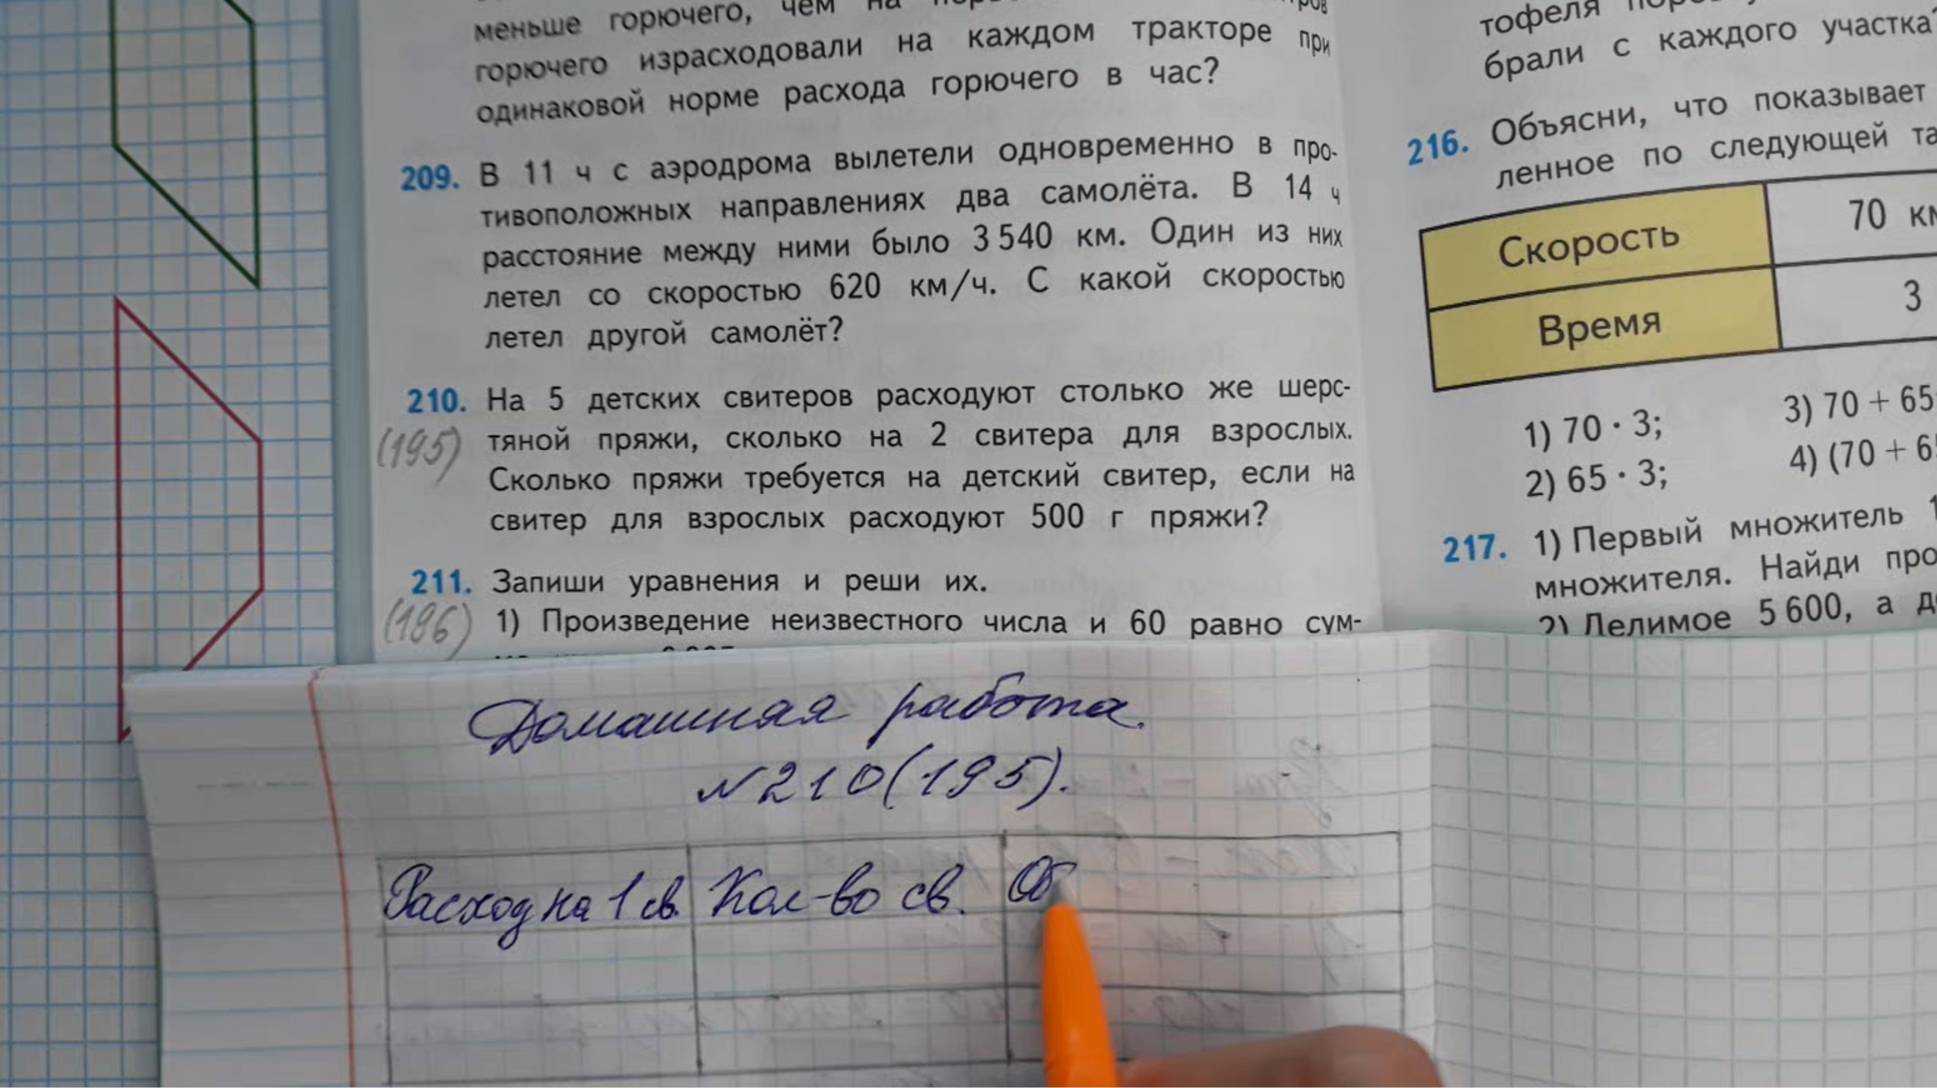 меньше горючего, чем на
горючего израсходовали на каждом тракторе при
одинаковой норме расхода горючего в час?
209. В 11 ч с аэродрома вылетели одновременно в про-
тивоположных направлениях два самолёта. В 14 ч
расстояние между ними было 3 540 км. Один из них
летел со скоростью 620 км/ч. С какой скоростью
летел другой самолёт?
210. На 5 детских свитеров расходуют столько же шерс-
(195) тяной пряжи, сколько на 2 свитера для взрослых.
Сколько пряжи требуется на детский свитер, если на
свитер для взрослых расходуют 500 г пряжи?
211. Запиши уравнения и реши их.
(196) 1) Произведение неизвестного числа и 60 равно сум-
тофеля
брали с каждого участка
216. Объясни, что показывает
ленное по следующей та
Скорость 70 км
Время 3
1) 70 · 3; 3) 70 + 65
2) 65 · 3; 4) (70 + 6
217. 1) Первый множитель 1
множителя. Найди про
2) Делимое 5 600, а д
Домашняя работа.
№210(195).
Расход на 1 св. Кол-во св. Об